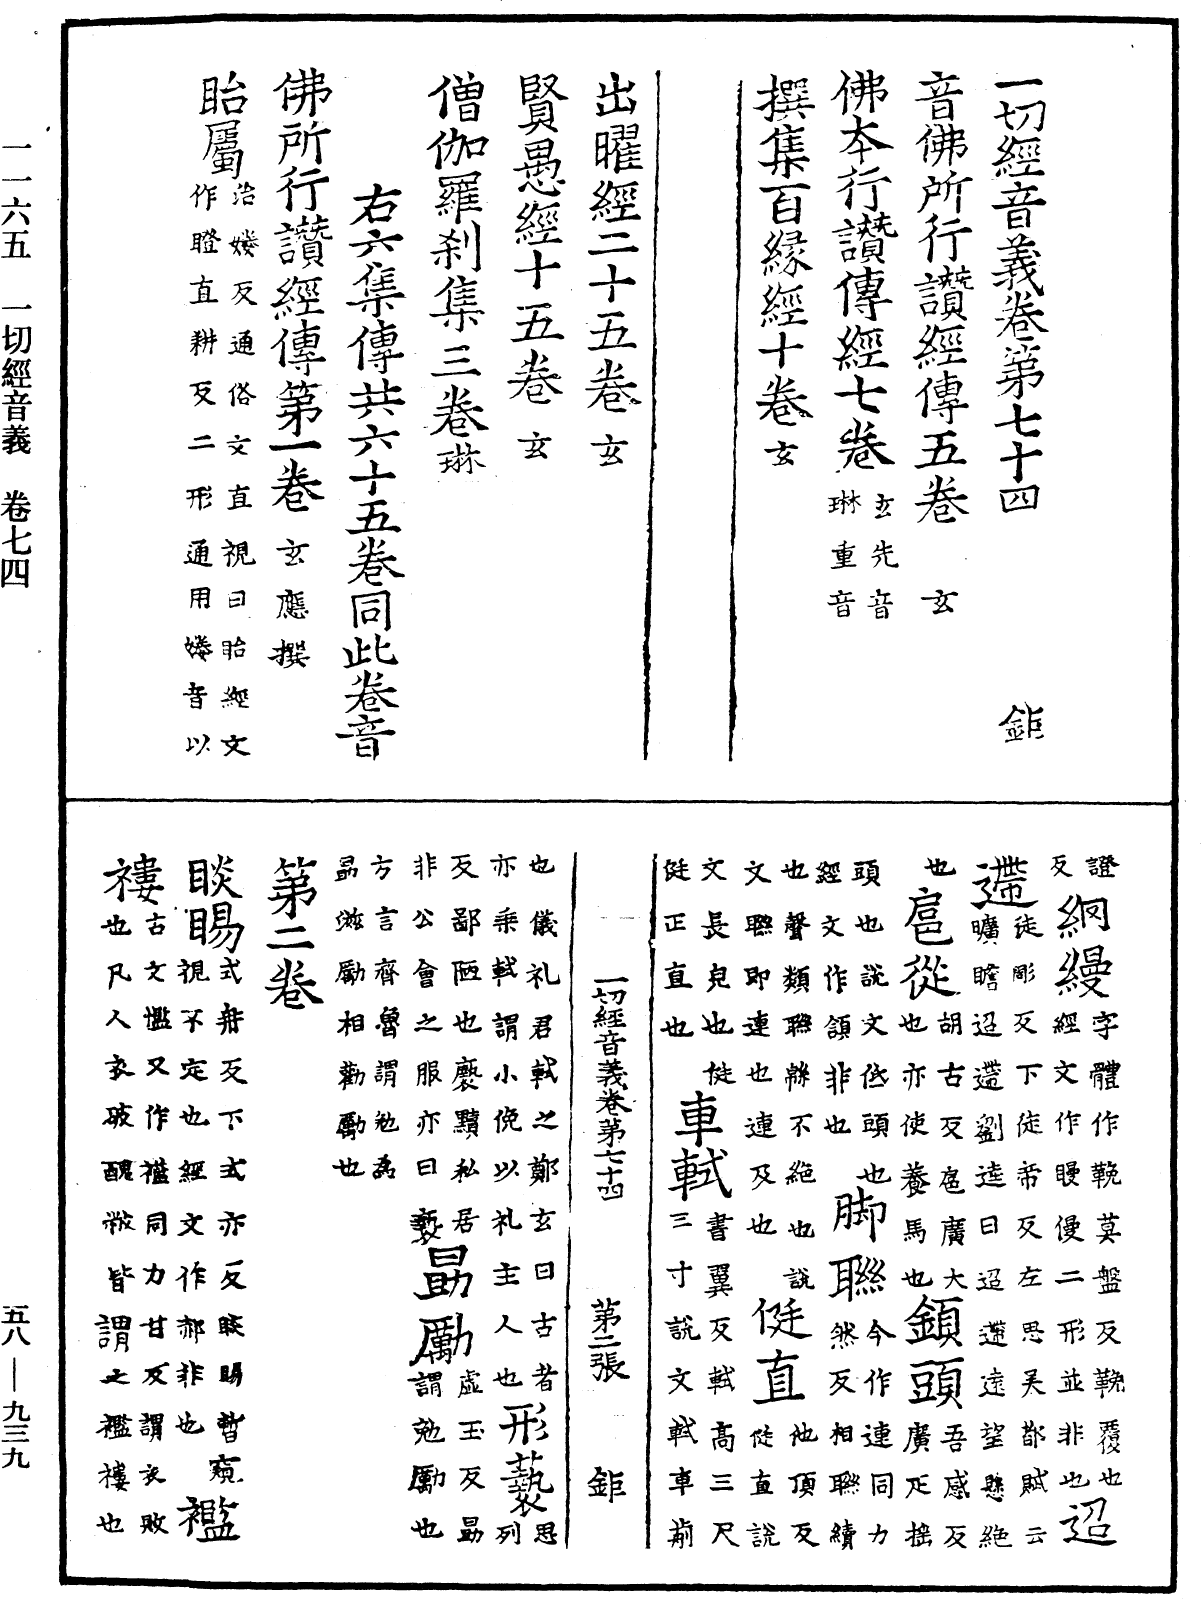 一切經音義卷第七十四 鉅
音佛所行讚經傳五卷 玄
佛本行讚傳經七卷 玄先音
琳重音
撰集百緣經十卷 玄
出曜經二十五卷 玄
賢愚經十五卷 玄
僧伽羅刹集三卷 琳
右六集傳共六十五卷同此卷音
佛所行讚經傳第一卷 玄應撰
眙屬 治㜢反通俗文直視曰眙經文
作瞪直耕反二形通用㜢音以
證
反 網縵 字體作鞔莫盤反鞔覆也
經文作䁂僈二形並非也 迢
遰 徒彫反下徒帝反左思吳都賦云
曠瞻迢遰劉逵曰迢遰遠望懸絕
也 扈從 胡古反扈廣大
也亦使養馬也 顉頭 吾感反
廣疋搖
頭也說文低頭也
經文作頷非也 脚聯 今作連同力
然反相聯續
也聲類聯緜不絕也說
文聯即連也連及也 侹直 他頂反
侹直說
文長皃也侹
侹正直也 車軾 書翼反軾高三尺
三寸說文軾車前
一切經音義卷第七十四 第二張 鉅
也儀礼君軾之鄭玄曰古者
亦乘軾謂小俛以礼主人也 形褻 思
列
反鄙陋也褻黷私居
非公會之服亦曰褻 勗勵 虛玉反勗
謂勉勵也
方言齊魯謂勉為
勗滋勵相勸勵也
第二卷
睒睗 式冉反下式亦反睒睗暫窺
視不定也經文作郝非也 襤
褸 古文㡮又作襤同力甘反謂衣敗
也凡人衣破醜弊皆謂之襤褸也
一一六五 一切經音義 卷七四
五八—九三九